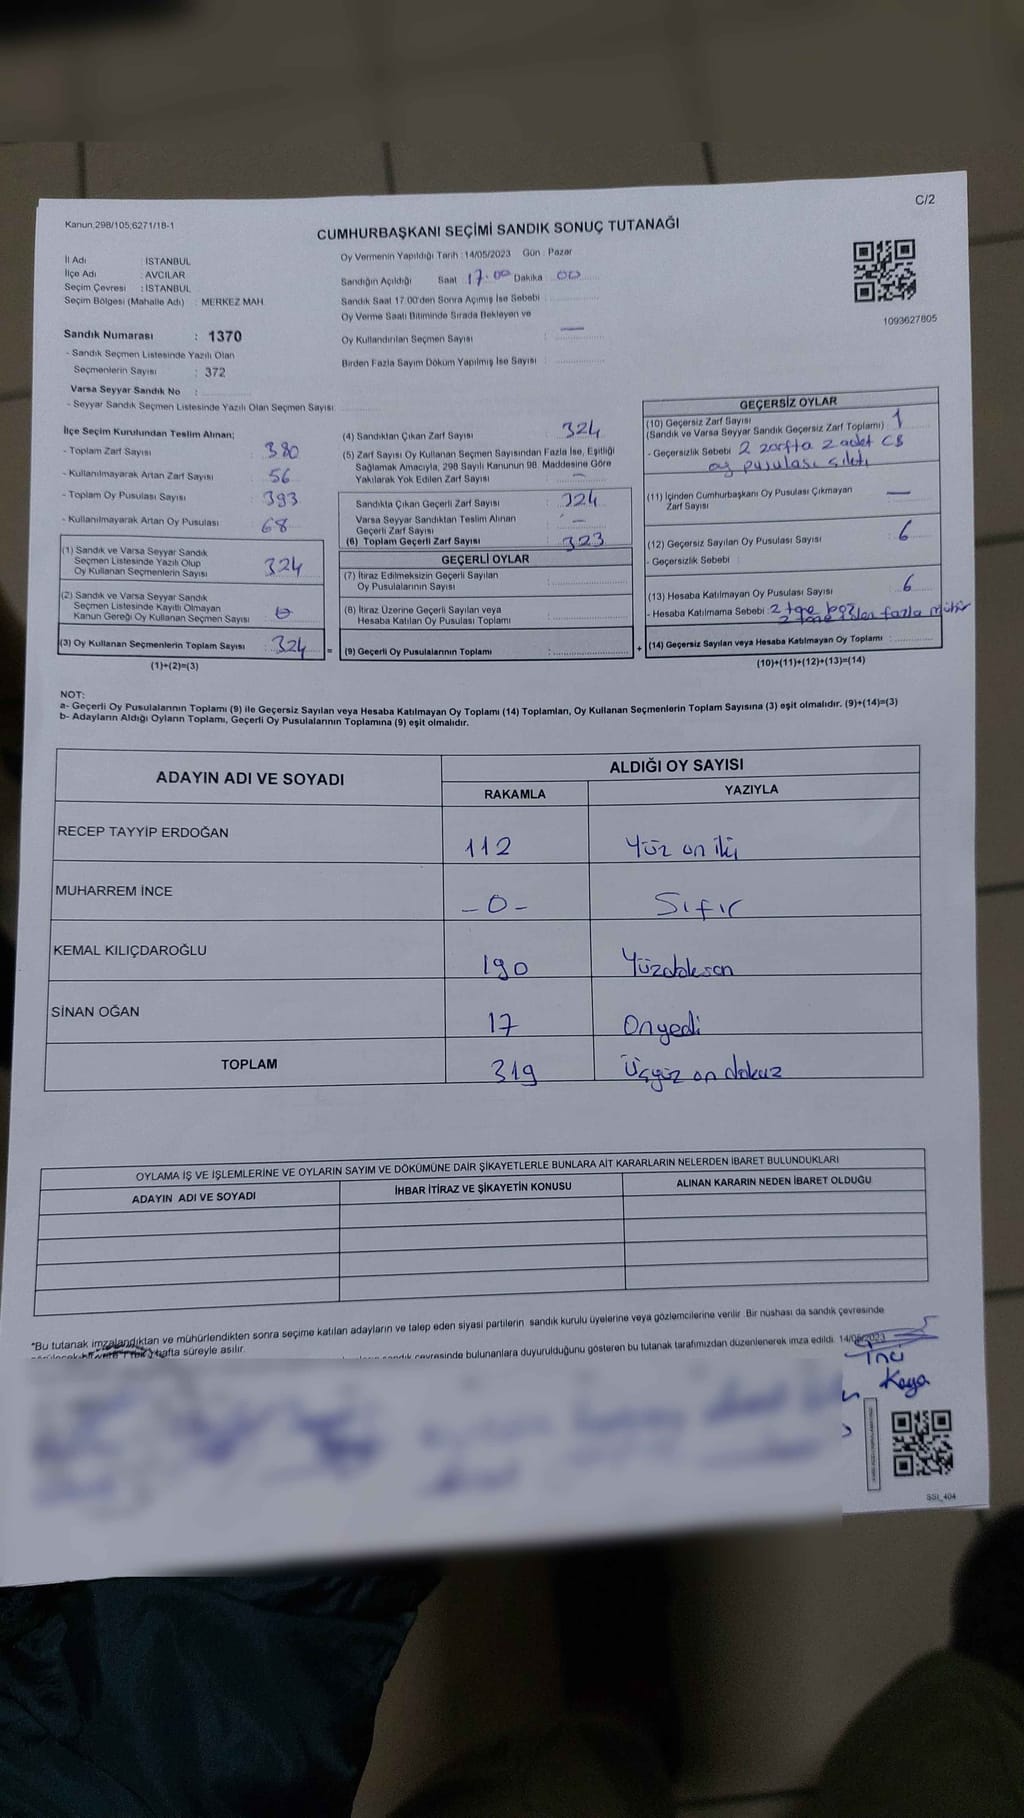 C/2
Kanun:298/105;6271/18-1
CUMHURBAŞKANI SEÇİMİ SANDIK SONUÇ TUTANAĞI
İl Adı : İSTANBUL
İlçe Adı : AVCILAR
Seçim Çevresi : İSTANBUL
Seçim Bölgesi (Mahalle Adı) : MERKEZ MAH
Sandık Numarası : 1370
- Sandık Seçmen Listesinde Yazılı Olan
Seçmenlerin Sayısı : 372
Varsa Seyyar Sandık No :
- Seyyar Sandık Seçmen Listesinde Yazılı Olan Seçmen Sayısı:
Oy Vermenin Yapıldığı Tarih : 14/05/2023 Gün : Pazar
Sandığın Açıldığı Saat 17.00 Dakika 00
Sandık Saat 17.00'den Sonra Açımış İse Sebebi :
Oy Verme Saati Bitiminde Sırada Bekleyen ve
Oy Kullandırılan Seçmen Sayısı : —
Birden Fazla Sayım Döküm Yapılmış İse Sayısı :
1093627805
İlçe Seçim Kurulundan Teslim Alınan;
- Toplam Zarf Sayısı : 380
- Kullanılmayarak Artan Zarf Sayısı : 56
- Toplam Oy Pusulası Sayısı : 393
- Kullanılmayarak Artan Oy Pusulası : 68
(1) Sandık ve Varsa Seyyar Sandık
Seçmen Listesinde Yazılı Olup
Oy Kullanan Seçmenlerin Sayısı : 324
(2) Sandık ve Varsa Seyyar Sandık
Seçmen Listesinde Kayıtlı Olmayan
Kanun Gereği Oy Kullanan Seçmen Sayısı :
(3) Oy Kullanan Seçmenlerin Toplam Sayısı : 324
(1)+(2)=(3)
(4) Sandıktan Çıkan Zarf Sayısı : 324
(5) Zarf Sayısı Oy Kullanan Seçmen Sayısından Fazla İse, Eşitliği
Sağlamak Amacıyla, 298 Sayılı Kanunun 98. Maddesine Göre
Yakılarak Yok Edilen Zarf Sayısı : —
Sandıkta Çıkan Geçerli Zarf Sayısı : 324
Varsa Seyyar Sandıktan Teslim Alınan
Geçerli Zarf Sayısı : —
(6) Toplam Geçerli Zarf Sayısı : 323
GEÇERLİ OYLAR
(7) İtiraz Edilmeksizin Geçerli Sayılan
Oy Pusulalarının Sayısı :
(8) İtiraz Üzerine Geçerli Sayılan veya
Hesaba Katılan Oy Pusulası Toplamı :
= (9) Geçerli Oy Pusulalarının Toplamı :
GEÇERSİZ OYLAR
(10) Geçersiz Zarf Sayısı
(Sandık ve Varsa Seyyar Sandık Geçersiz Zarf Toplamı) : 1
- Geçersizlik Sebebi : 2 zarfta 2 adet CB
oy pusulası
(11) İçinden Cumhurbaşkanı Oy Pusulası Çıkmayan
Zarf Sayısı : —
(12) Geçersiz Sayılan Oy Pusulası Sayısı : 6
- Geçersizlik Sebebi :
(13) Hesaba Katılmayan Oy Pusulası Sayısı : 6
- Hesaba Katılmama Sebebi : 2 boş
2 fazla mühür
+ (14) Geçersiz Sayılan veya Hesaba Katılmayan Oy Toplamı :
(10)+(11)+(12)+(13)=(14)
NOT:
a- Geçerli Oy Pusulalarının Toplamı (9) ile Geçersiz Sayılan veya Hesaba Katılmayan Oy Toplamı (14) Toplamları, Oy Kullanan Seçmenlerin Toplam Sayısına (3) eşit olmalıdır. (9)+(14)=(3)
b- Adayların Aldığı Oyların Toplamı, Geçerli Oy Pusulalarının Toplamına (9) eşit olmalıdır.
ADAYIN ADI VE SOYADI ALDIĞI OY SAYISI
RAKAMLA YAZIYLA
RECEP TAYYİP ERDOĞAN 112 Yüz on iki
MUHARREM İNCE -0- Sıfır
KEMAL KILIÇDAROĞLU 190 Yüzdoksan
SİNAN OĞAN 17 Onyedi
TOPLAM 319 Üçyüz on dokuz
OYLAMA İŞ VE İŞLEMLERİNE VE OYLARIN SAYIM VE DÖKÜMÜNE DAİR ŞİKAYETLERLE BUNLARA AİT KARARLARIN NELERDEN İBARET BULUNDUKLARI
ADAYIN ADI VE SOYADI İHBAR İTİRAZ VE ŞİKAYETİN KONUSU ALINAN KARARIN NEDEN İBARET OLDUĞU
*Bu tutanak imzalandıktan ve mühürlendikten sonra seçime katılan adayların ve talep eden siyasi partilerin sandık kurulu üyelerine veya gözlemcilerine verilir. Bir nüshası da sandık çevresinde
hafta süreyle asılır.
sandık çevresinde bulunanlara duyurulduğunu gösteren bu tutanak tarafımızdan düzenlenerek imza edildi. 14/05/2023
İnci
Kaya
SSI_404